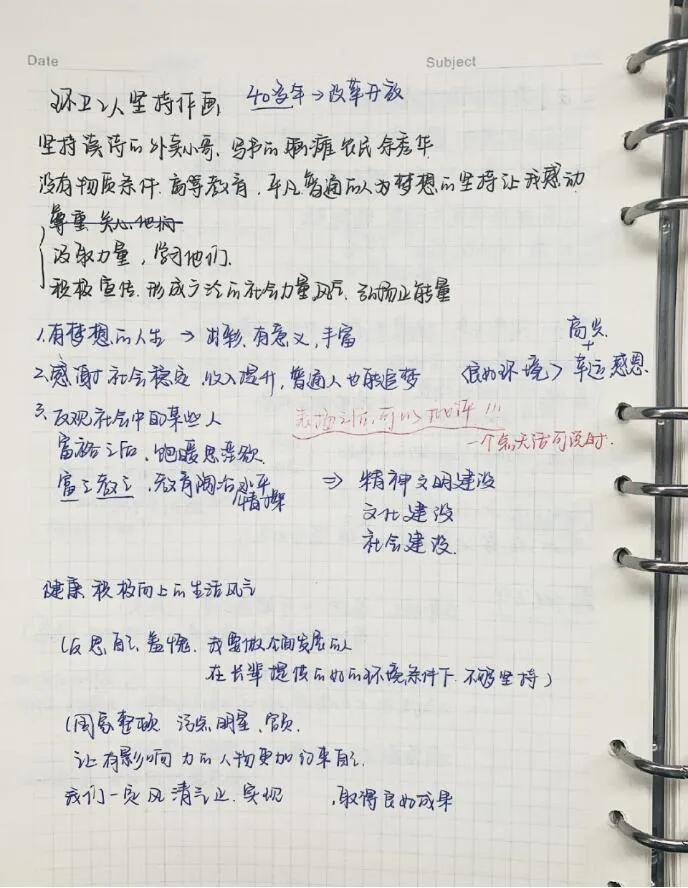 Date Subject
环卫工人坚持作画 40多年→改革开放
坚持读诗的外卖小哥、写书的脑瘫农民余秀华
没有物质条件、高等教育,平凡普通的人为梦想的坚持让我感动
尊重 关心他们
汲取力量,学习他们.
积极宣传.形成广泛的社会力量风气.弘扬正能量
1.有梦想的人生 → 出彩,有意义,丰富
高尚
+
2.感谢社会稳定,收入提升,普通人也能追梦 〈良好环境〉 幸运 感恩
3.反观社会中的某些人 表扬之后,可以批评!!!
富裕之后、饱暖思淫欲 一个点无话可说时.
富之教之,教育陶冶水平 ⇒ 精神文明建设
情操
文化建设
社会建设.
健康、积极向上的生活风气
(反思自己 羞愧.我要做全面发展的人
在长辈提供的好的环境条件下 不够坚持)
(国家整顿 污点明星、官员.
让有影响力的人物更加约束自己.
我们一定风清气正.实现 ,取得良好成果